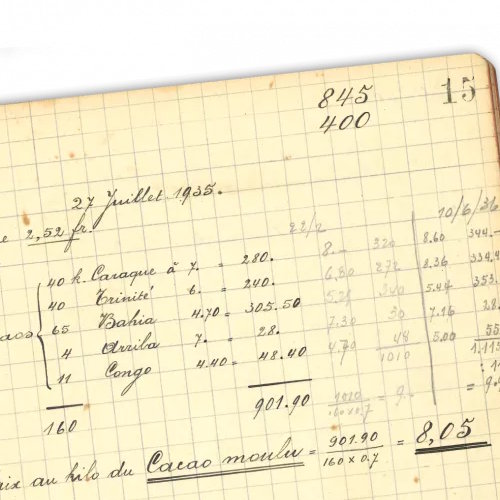 15
845
400
27 Juillet 1935.
2,52 fr.
22/2
10/6/36
40 k. Caraque à 7. = 280. 8.— 320 8.60 344.—
40 Trinité 6. = 240. 6.80 272 8.36 334.4
65 Bahia 4.70 = 305.50 5.44 353.
4 Arriba 7. = 28. 7.30 30 7.16 28.
11 Congo 4.40 = 48.40 48 5.00 55
1010 1.115
160 901.90 1010/160x0.7 = 9.
au kilo du Cacao moulu = 901.90/160x0.7 = 8,05